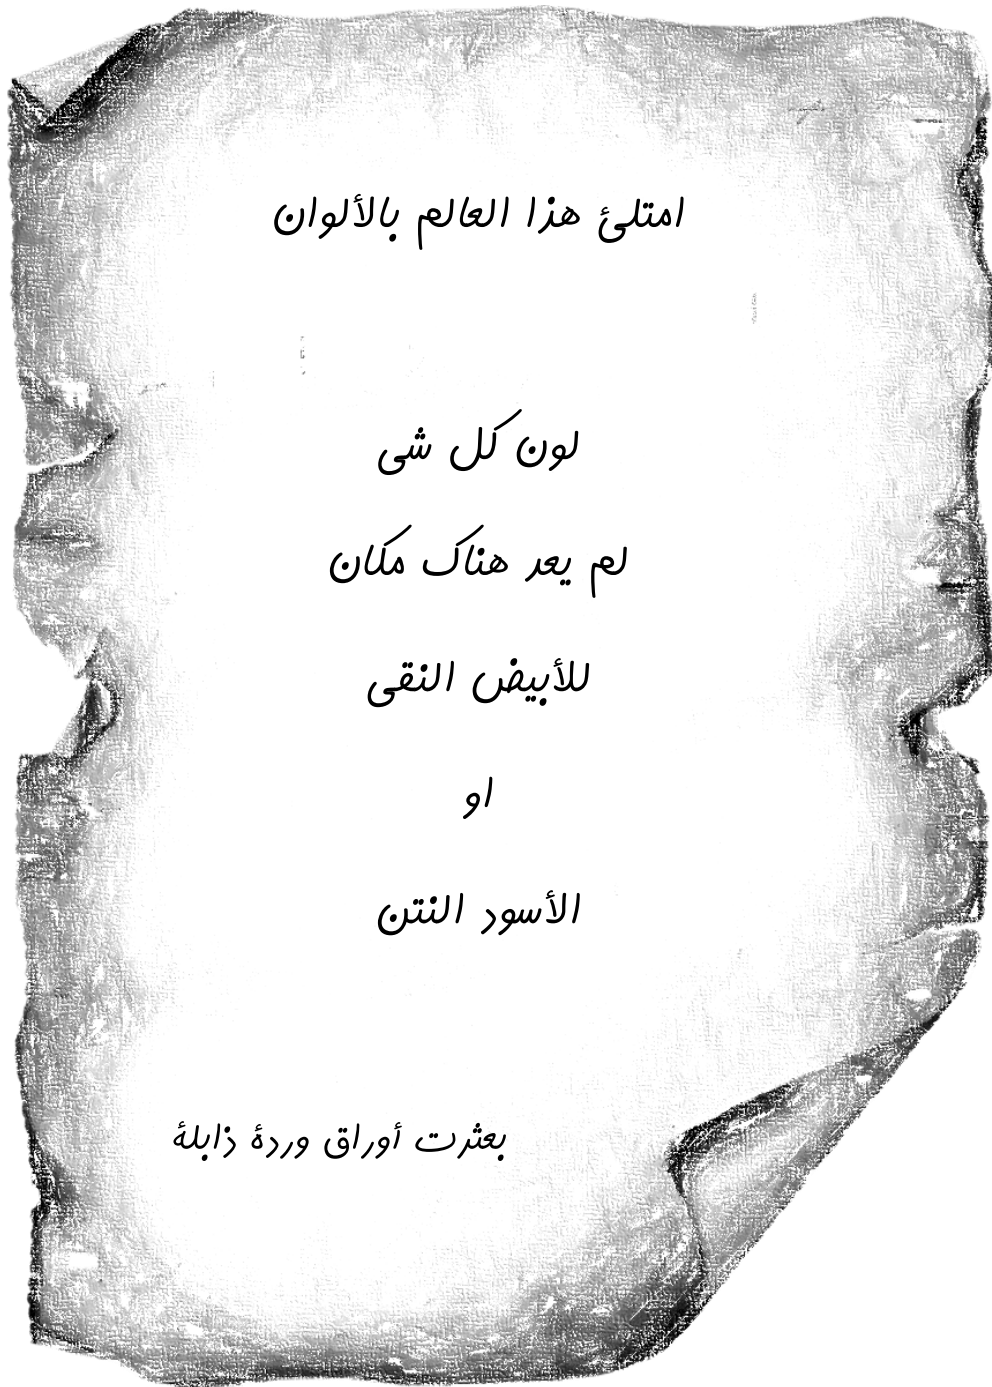 امتلئ هذا العالم بالألوان
لون كل شى
لم يعد هناك مكان
للأبيض النقى
او
الأسود النتن
بعثرت أوراق وردة ذابلة